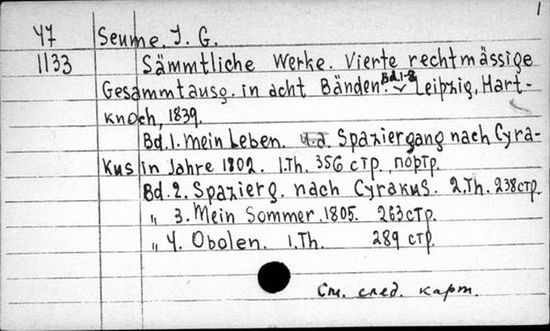 1
У7 Seume, J. G.
1133 Sämmtliche Werke. Vierte rechtmässige
Gesammtausg. in acht Bänden. Bd. 1-8 Leipzig, Hart-
knoch, 1839.
Bd. 1. Mein Leben. u.a. Spaziergang nach Cyra-
kus in Jahre 1802. 1.Th. 356 стр., портр.
Bd. 2. Spazierg. nach Cyrakus. 2.Th. 238 стр.
„ 3. Mein Sommer. 1805. 263 стр.
„ 4. Obolen. 1.Th. 289 стр.
См. след. карт.